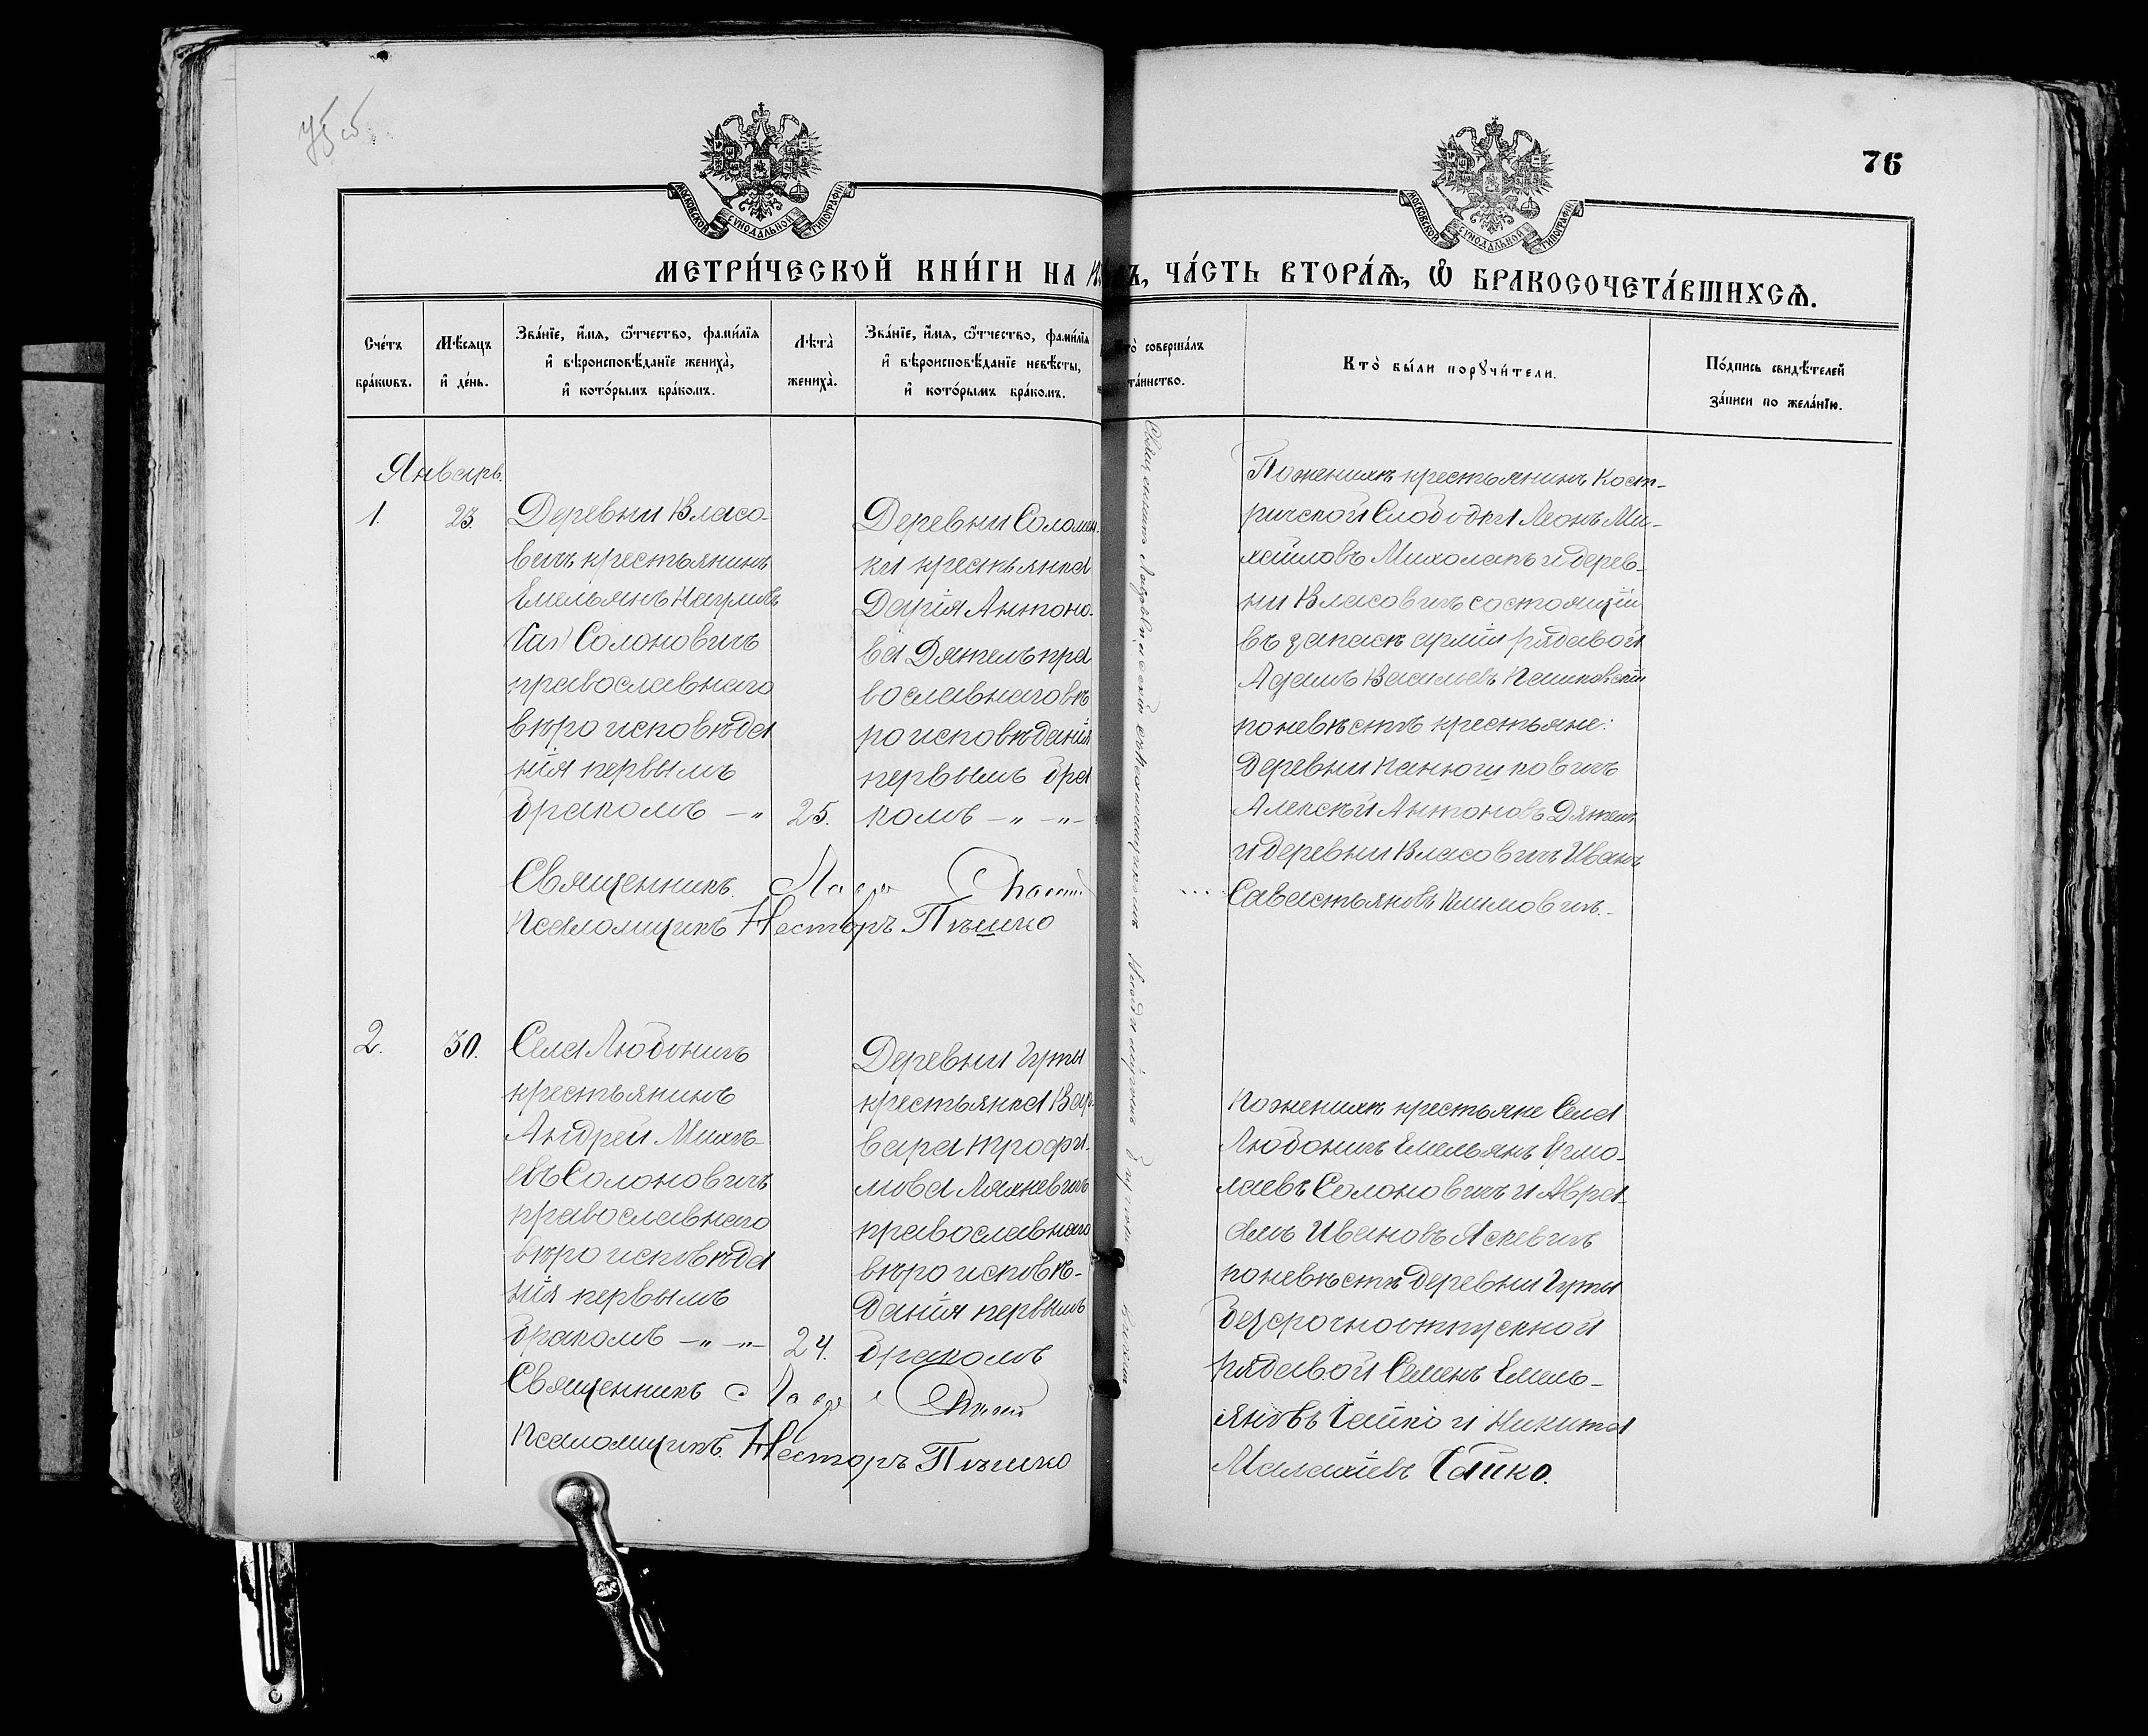 75об
76
МОСКОВСКОЙ СУНОДАЛЬНОЙ ТИПОГРАФІИ
МОСКОВСКОЙ СУНОДАЛЬНОЙ ТИПОГРАФІИ
МЕТРИ́ЧЕСКОЙ КНИ́ГИ НА
ЧА́СТЬ ВТОРА́Ѧ, Ѡ БРАКОСОЧЕТА́ВШИХСѦ.
Сче́тъ бра́кѡвъ.
Мѣ́сяцъ и҆ де́нь.
Зва́нїе, и҆́мѧ, ѻ҆́тчество, фами́лїѧ
и҆ вѣроисповѣ́данїе жениха̀,
и҆ кото́рымъ бра́комъ.
Лѣта̀ жениха̀.
Зва́нїе, и҆́мѧ, ѻ҆́тчество, фами́лїѧ
и҆ вѣроисповѣ́данїе невѣ́сты,
и҆ кото́рымъ бра́комъ.
совершáлъ
та́инство.
Кто̀ бы́ли порꙋчи́тели.
По́дпись свидѣ́телей
за́писи по жела́нїю.
Январь.
1.
23.
Деревни Власо-
вичъ крестьянинъ
Емельянъ Наумовъ
Солоновичъ
православнаго
вѣроисповѣда
нія первымъ
бракомъ
25.
Деревни Соломен-
ки крестьянка
Дарія Антоно-
ва Дятелъ пра
вославнаго вѣ
роисповѣданія
первымъ бра
комъ
Священникъ
Псаломщикъ Несторъ Пѣшко
По женихѣ крестьянинъ Кост-
ричской Слободки Леонъ Ми-
хайловъ Михолапъ и дерев-
ни Власовичъ состоящій
въ запасѣ арміи рядовой
Адамъ Васильевъ Пашковскій
по невѣстѣ крестьяне:
деревни Панюшковичъ
Алексѣй Антоновъ Дятелъ
и деревни Власовичъ Иванъ
Савастьяновъ Климовичъ.
2.
30.
Села Любоничъ
крестьянинъ
Андрей Михѣ-
евъ Солоновичъ
православнаго
вѣроисповѣда
нія первымъ
бракомъ
24.
Деревни Гуты
крестьянка Вар-
вара Трофи-
мова Ляхневичъ
православнаго
вѣроисповѣ-
данія первымъ
бракомъ
Священникъ
Псаломщикъ Несторъ Пѣшко
По женихѣ крестьяне Села
Любоничъ Емельянъ Ермо-
лаевъ Солоновичъ и Авра-
амъ Ивановъ Яскевичъ
по невѣстѣ деревни Гуты
безсрочноотпускной
рядовой Семенъ Емель-
яновъ Чайко и Никита
Малахіевъ Чайко.